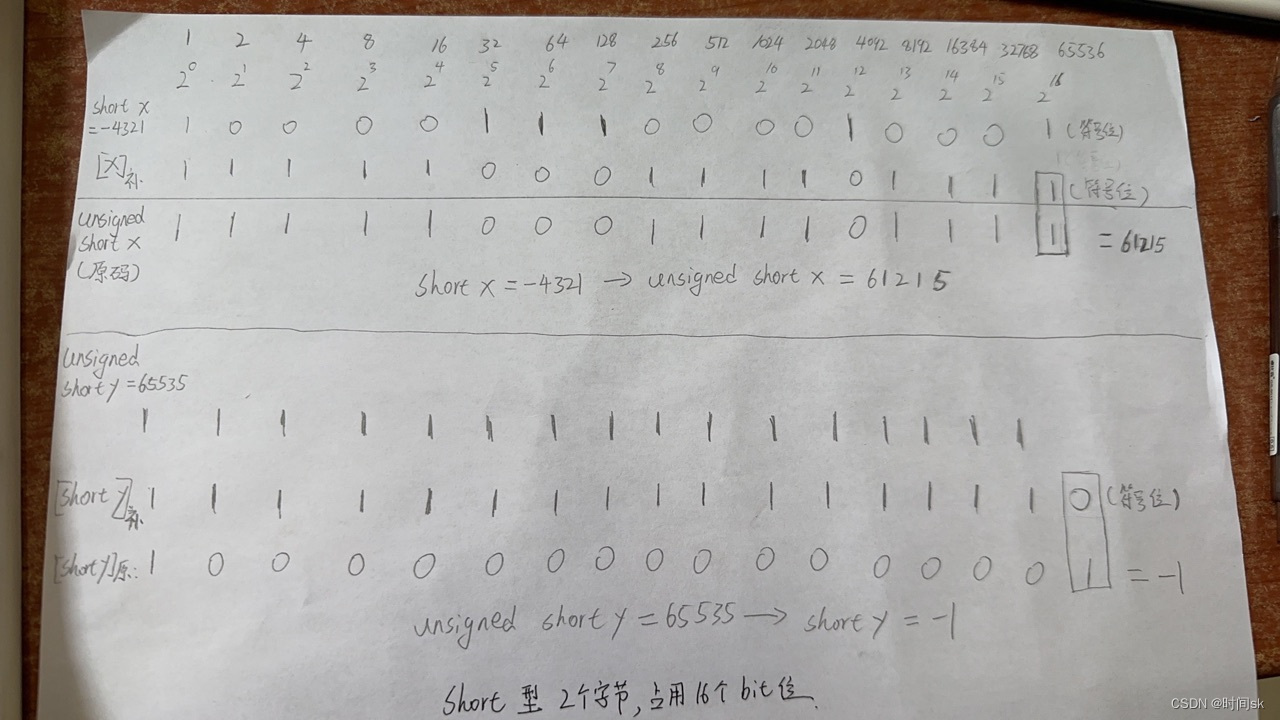 1 2 4 8 16 32 64 128 256 512 1024 2048 4092 8192 16384 32768 65536
2^0 2^1 2^2 2^3 2^4 2^5 2^6 2^7 2^8 2^9 2^10 2^11 2^12 2^13 2^14 2^15 2^16
short x
=-4321 1 0 0 0 0 1 1 1 0 0 0 0 1 0 0 0 1 (符号位)
[X]补. 1 1 1 1 1 0 0 0 1 1 1 1 0 1 1 1 1 (符号位)
unsigned
short x 1 1 1 1 1 0 0 0 1 1 1 1 0 1 1 1 1 = 61215
(原码)
short x = -4321 → unsigned short x = 61215
unsigned
short y = 65535
1 1 1 1 1 1 1 1 1 1 1 1 1 1 1 1
[short y]补. 1 1 1 1 1 1 1 1 1 1 1 1 1 1 1 1 0 (符号位)
[short y]原: 1 0 0 0 0 0 0 0 0 0 0 0 0 0 0 0 1 = -1
unsigned short y = 65535 → short y = -1
short 型 2个字节, 占用16个bit位.
CSDN @时间sk